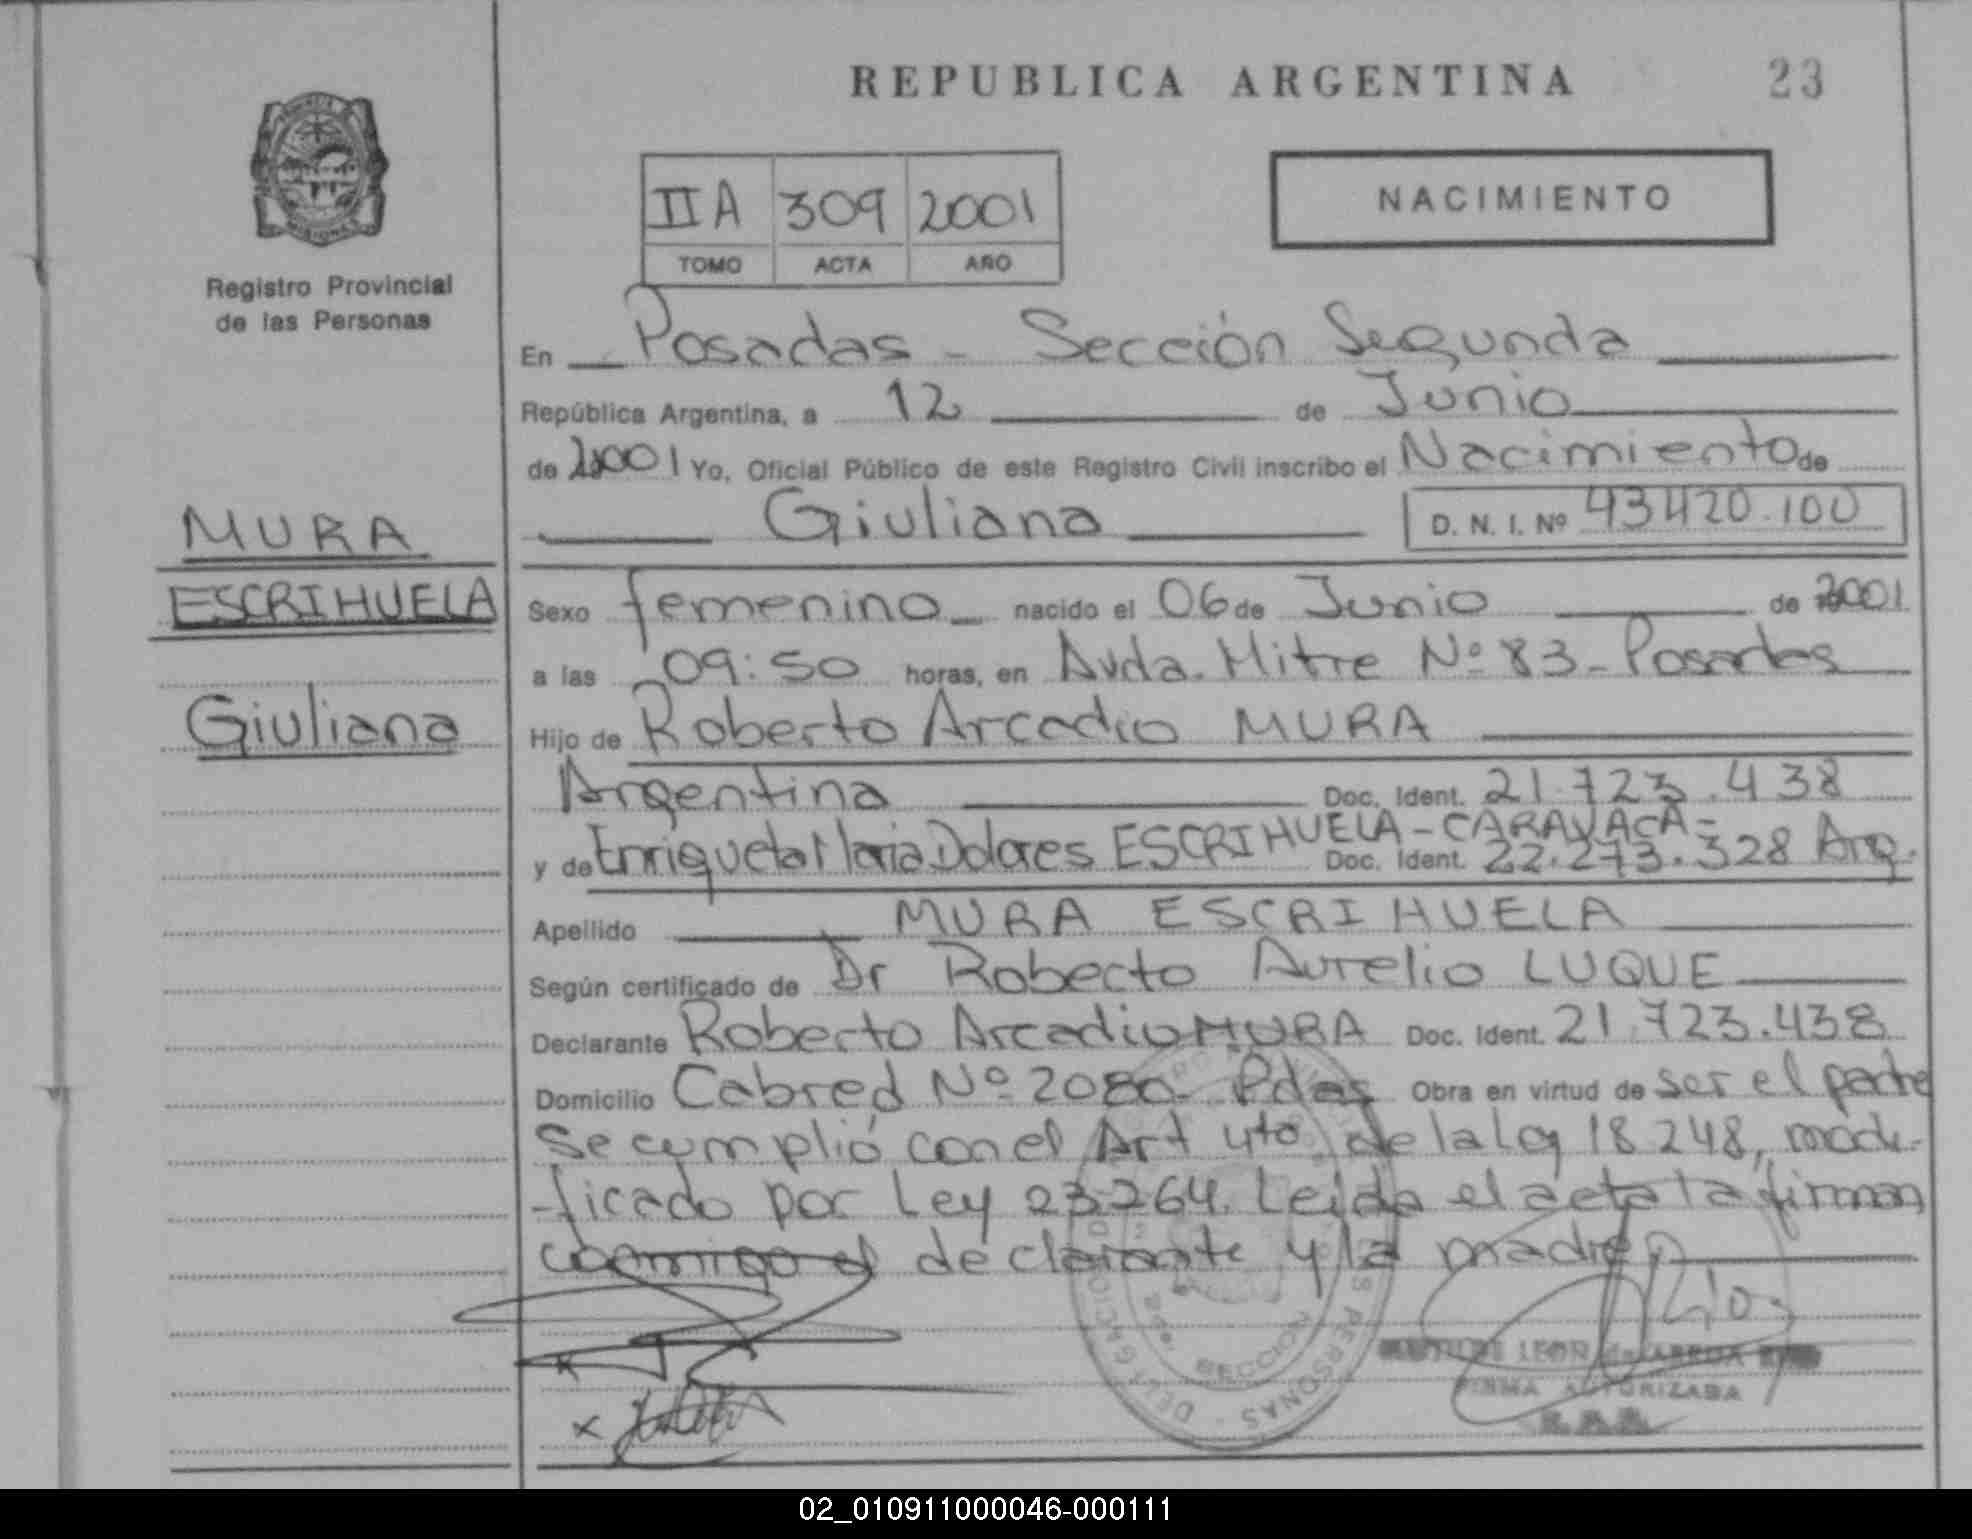 REPUBLICA ARGENTINA 23
NACIMIENTO
IIA 309 2001
TOMO ACTA AÑO
Registro Provincial
de las Personas
En Posadas - Sección Segunda
República Argentina, a 12 de Junio
de 2001 Yo, Oficial Público de este Registro Civil inscribo el Nacimiento de
Giuliana D. N. I. Nº 43420.100
MURA
ESCRIHUELA
Giuliana
Sexo femenino nacido el 06 de Junio de 2001
a las 09:50 horas, en Avda. Mitre Nº 83 - Posadas
Hijo de Roberto Arcadio MURA
Argentina Doc. Ident. 21.723.438
y de Enriqueta Maria Dolores ESCRIHUELA - CARAVACA -
Doc. Ident. 22.273.328 Arg.
Apellido MURA ESCRIHUELA
Según certificado de Dr Roberto Aurelio LUQUE
Declarante Roberto Arcadio MURA Doc. Ident. 21.723.438
Domicilio Cabred Nº 2080 - Pdas Obra en virtud de ser el padre
Se cumplió con el Art 4to de la Ley 18.248, modi-
-ficado por Ley 23.264. Leida el acta la firman
conmigo el declarante y la madre
SECCION
PERSONAS
LEON de
FIRMA AUTORIZADA
02_010911000046-000111